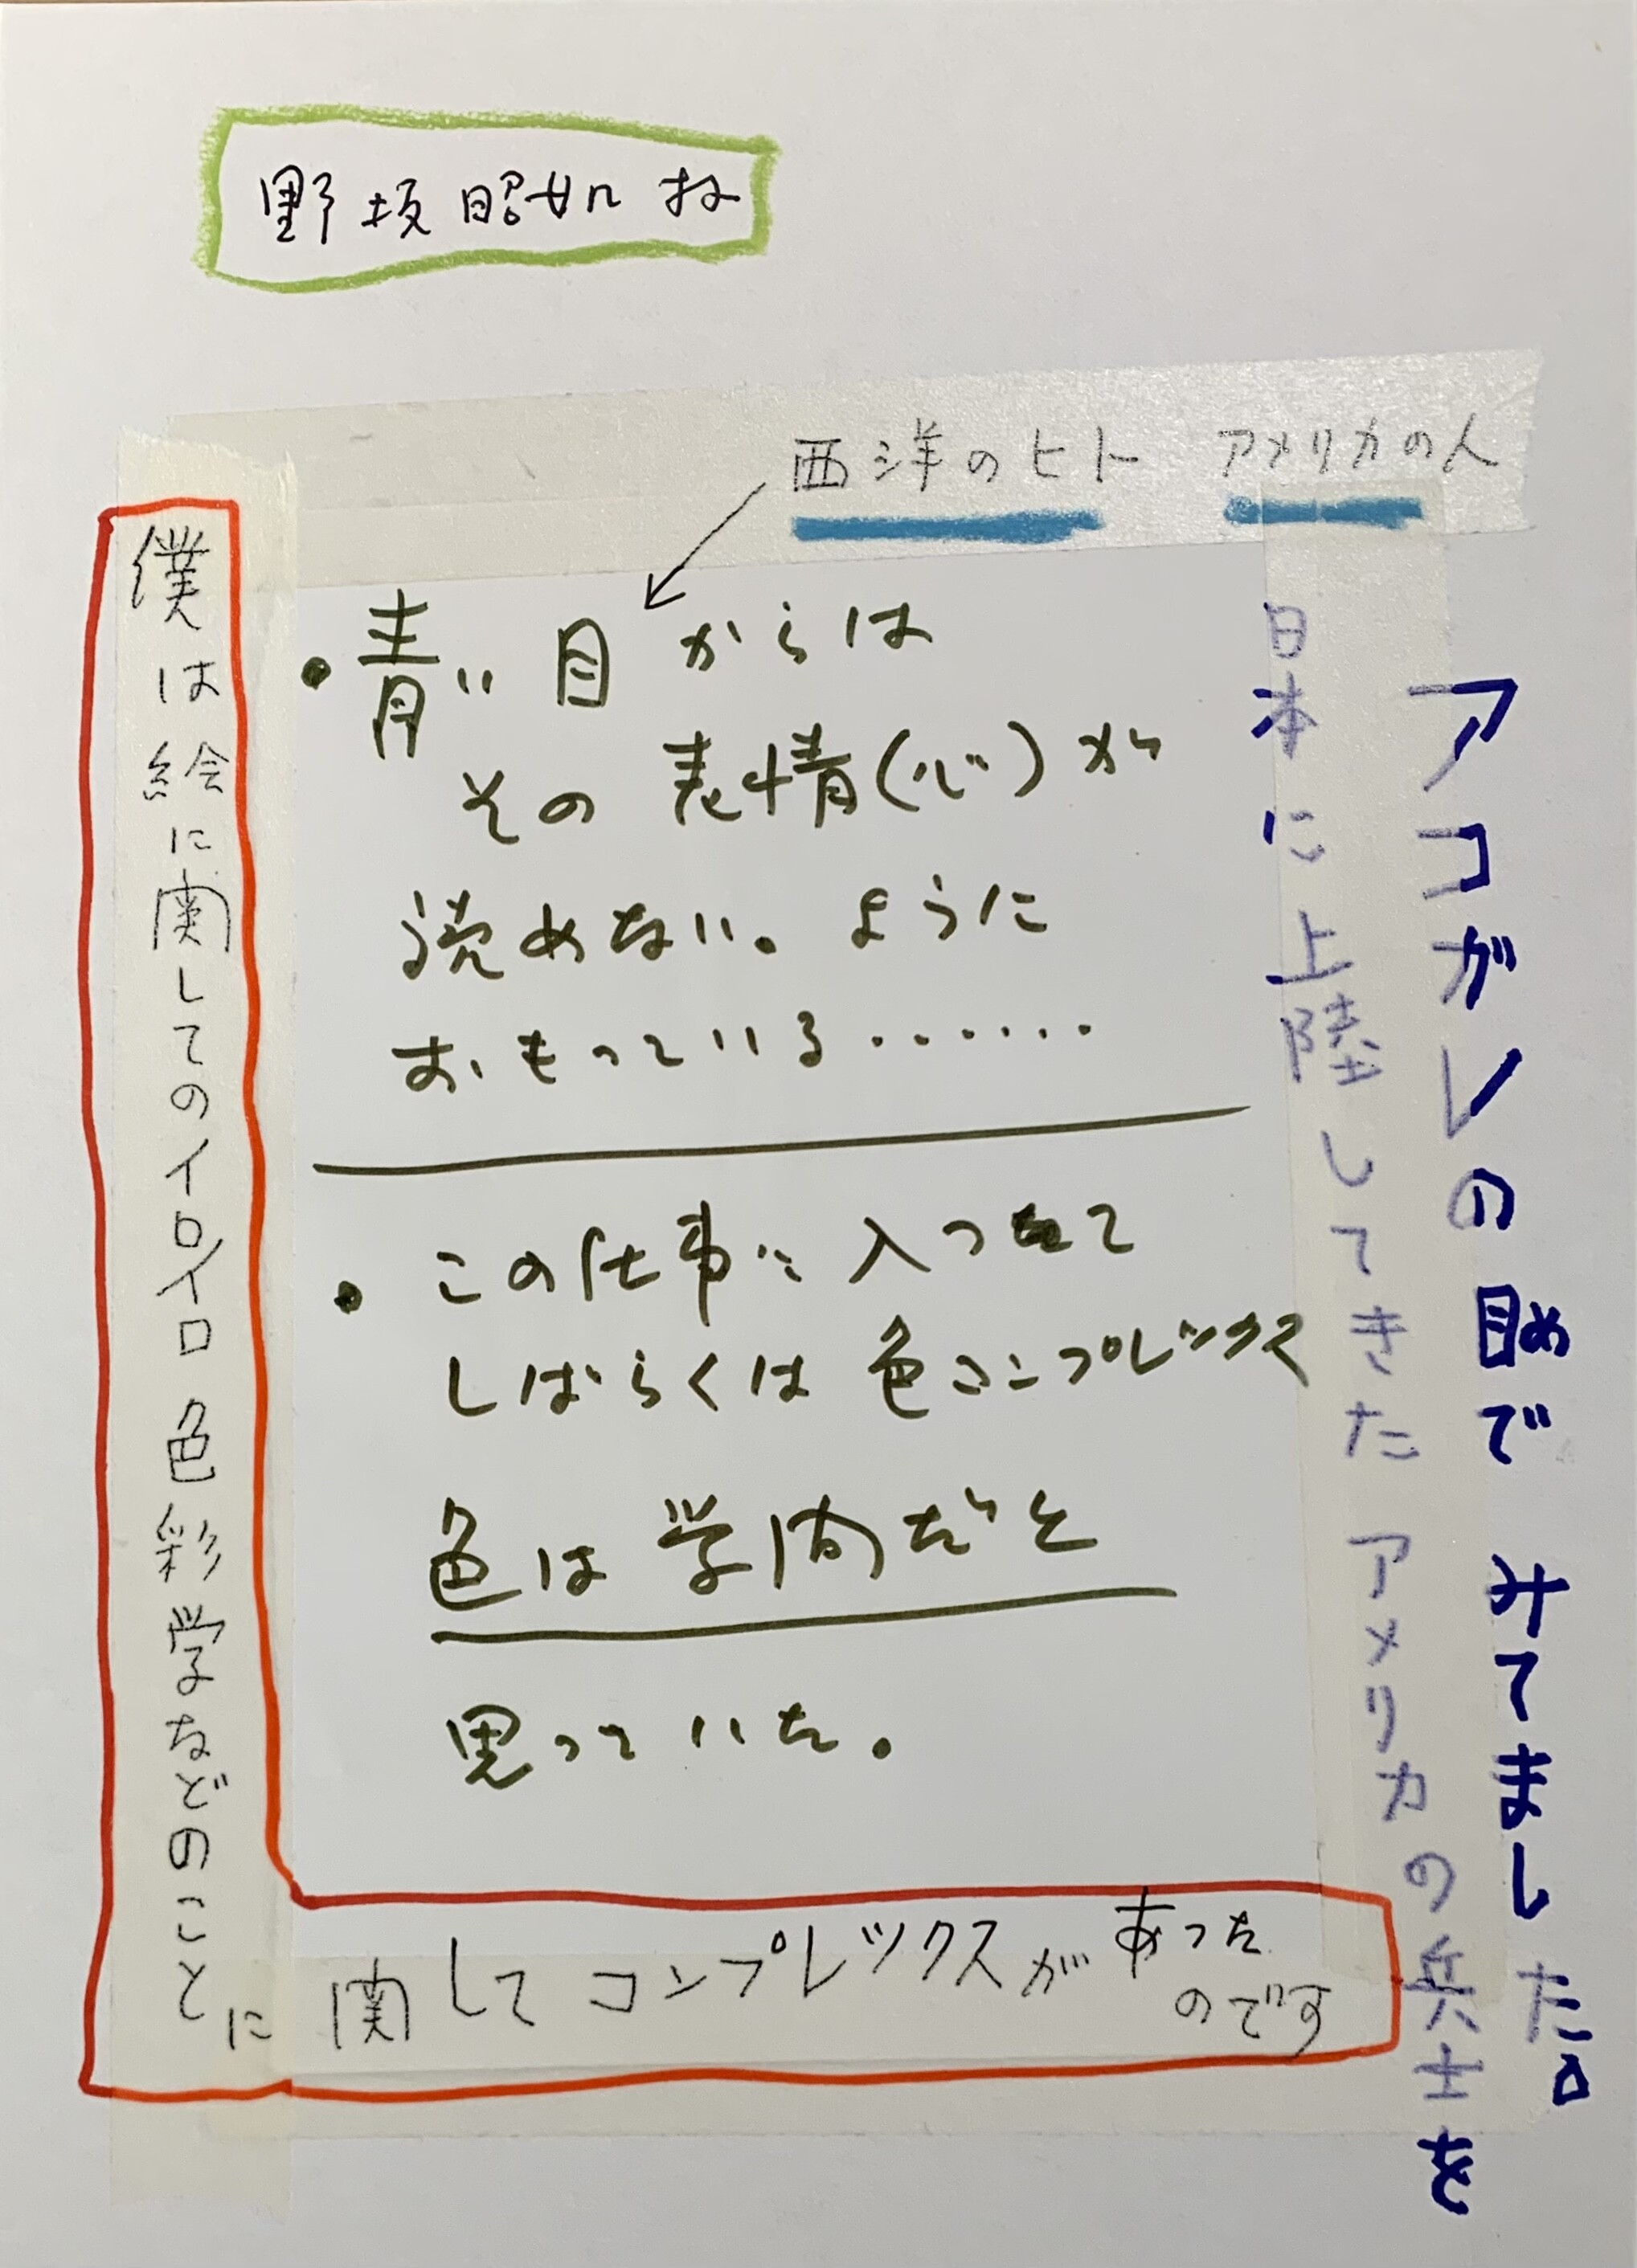 野坂昭如さん
西洋のヒト アメリカの人
・青い目からは
その表情(心)が
読めない。ように
おもっている・・・・・・・
・この仕事に入って
しばらくは色コンプレックス
色は学問だと
思っていた。
僕は絵に関してのイロイロ色彩学などのことに
関してコンプレックスがあった
のです
日本に上陸してきたアメリカの兵士を
アコガレの目めでみてました。